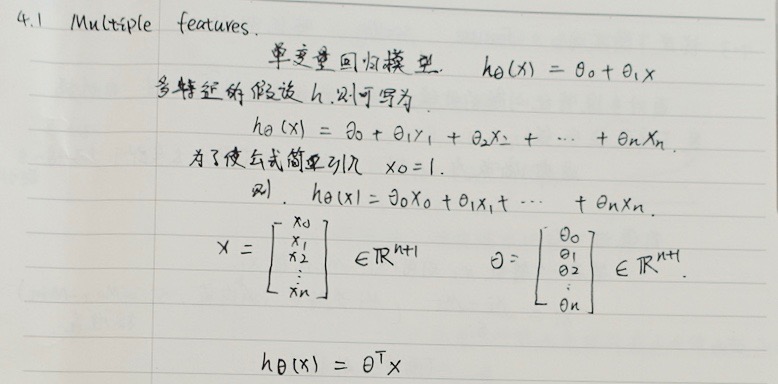 4.1 Multiple features.
单变量回归模型. hθ(x) = θ0 + θ1x
多特征的假设 h 则可写为
hθ(x) = θ0 + θ1x1 + θ2x2 + ⋯ + θnxn.
为了使公式简单引入 x0=1.
则. hθ(x) = θ0x0 + θ1x1 + ⋯ + θnxn.
x = [x0 x1 x2 ⋮ xn] ∈ ℝⁿ⁺¹ θ = [θ0 θ1 θ2 ⋮ θn] ∈ ℝⁿ⁺¹.
hθ(x) = θᵀx